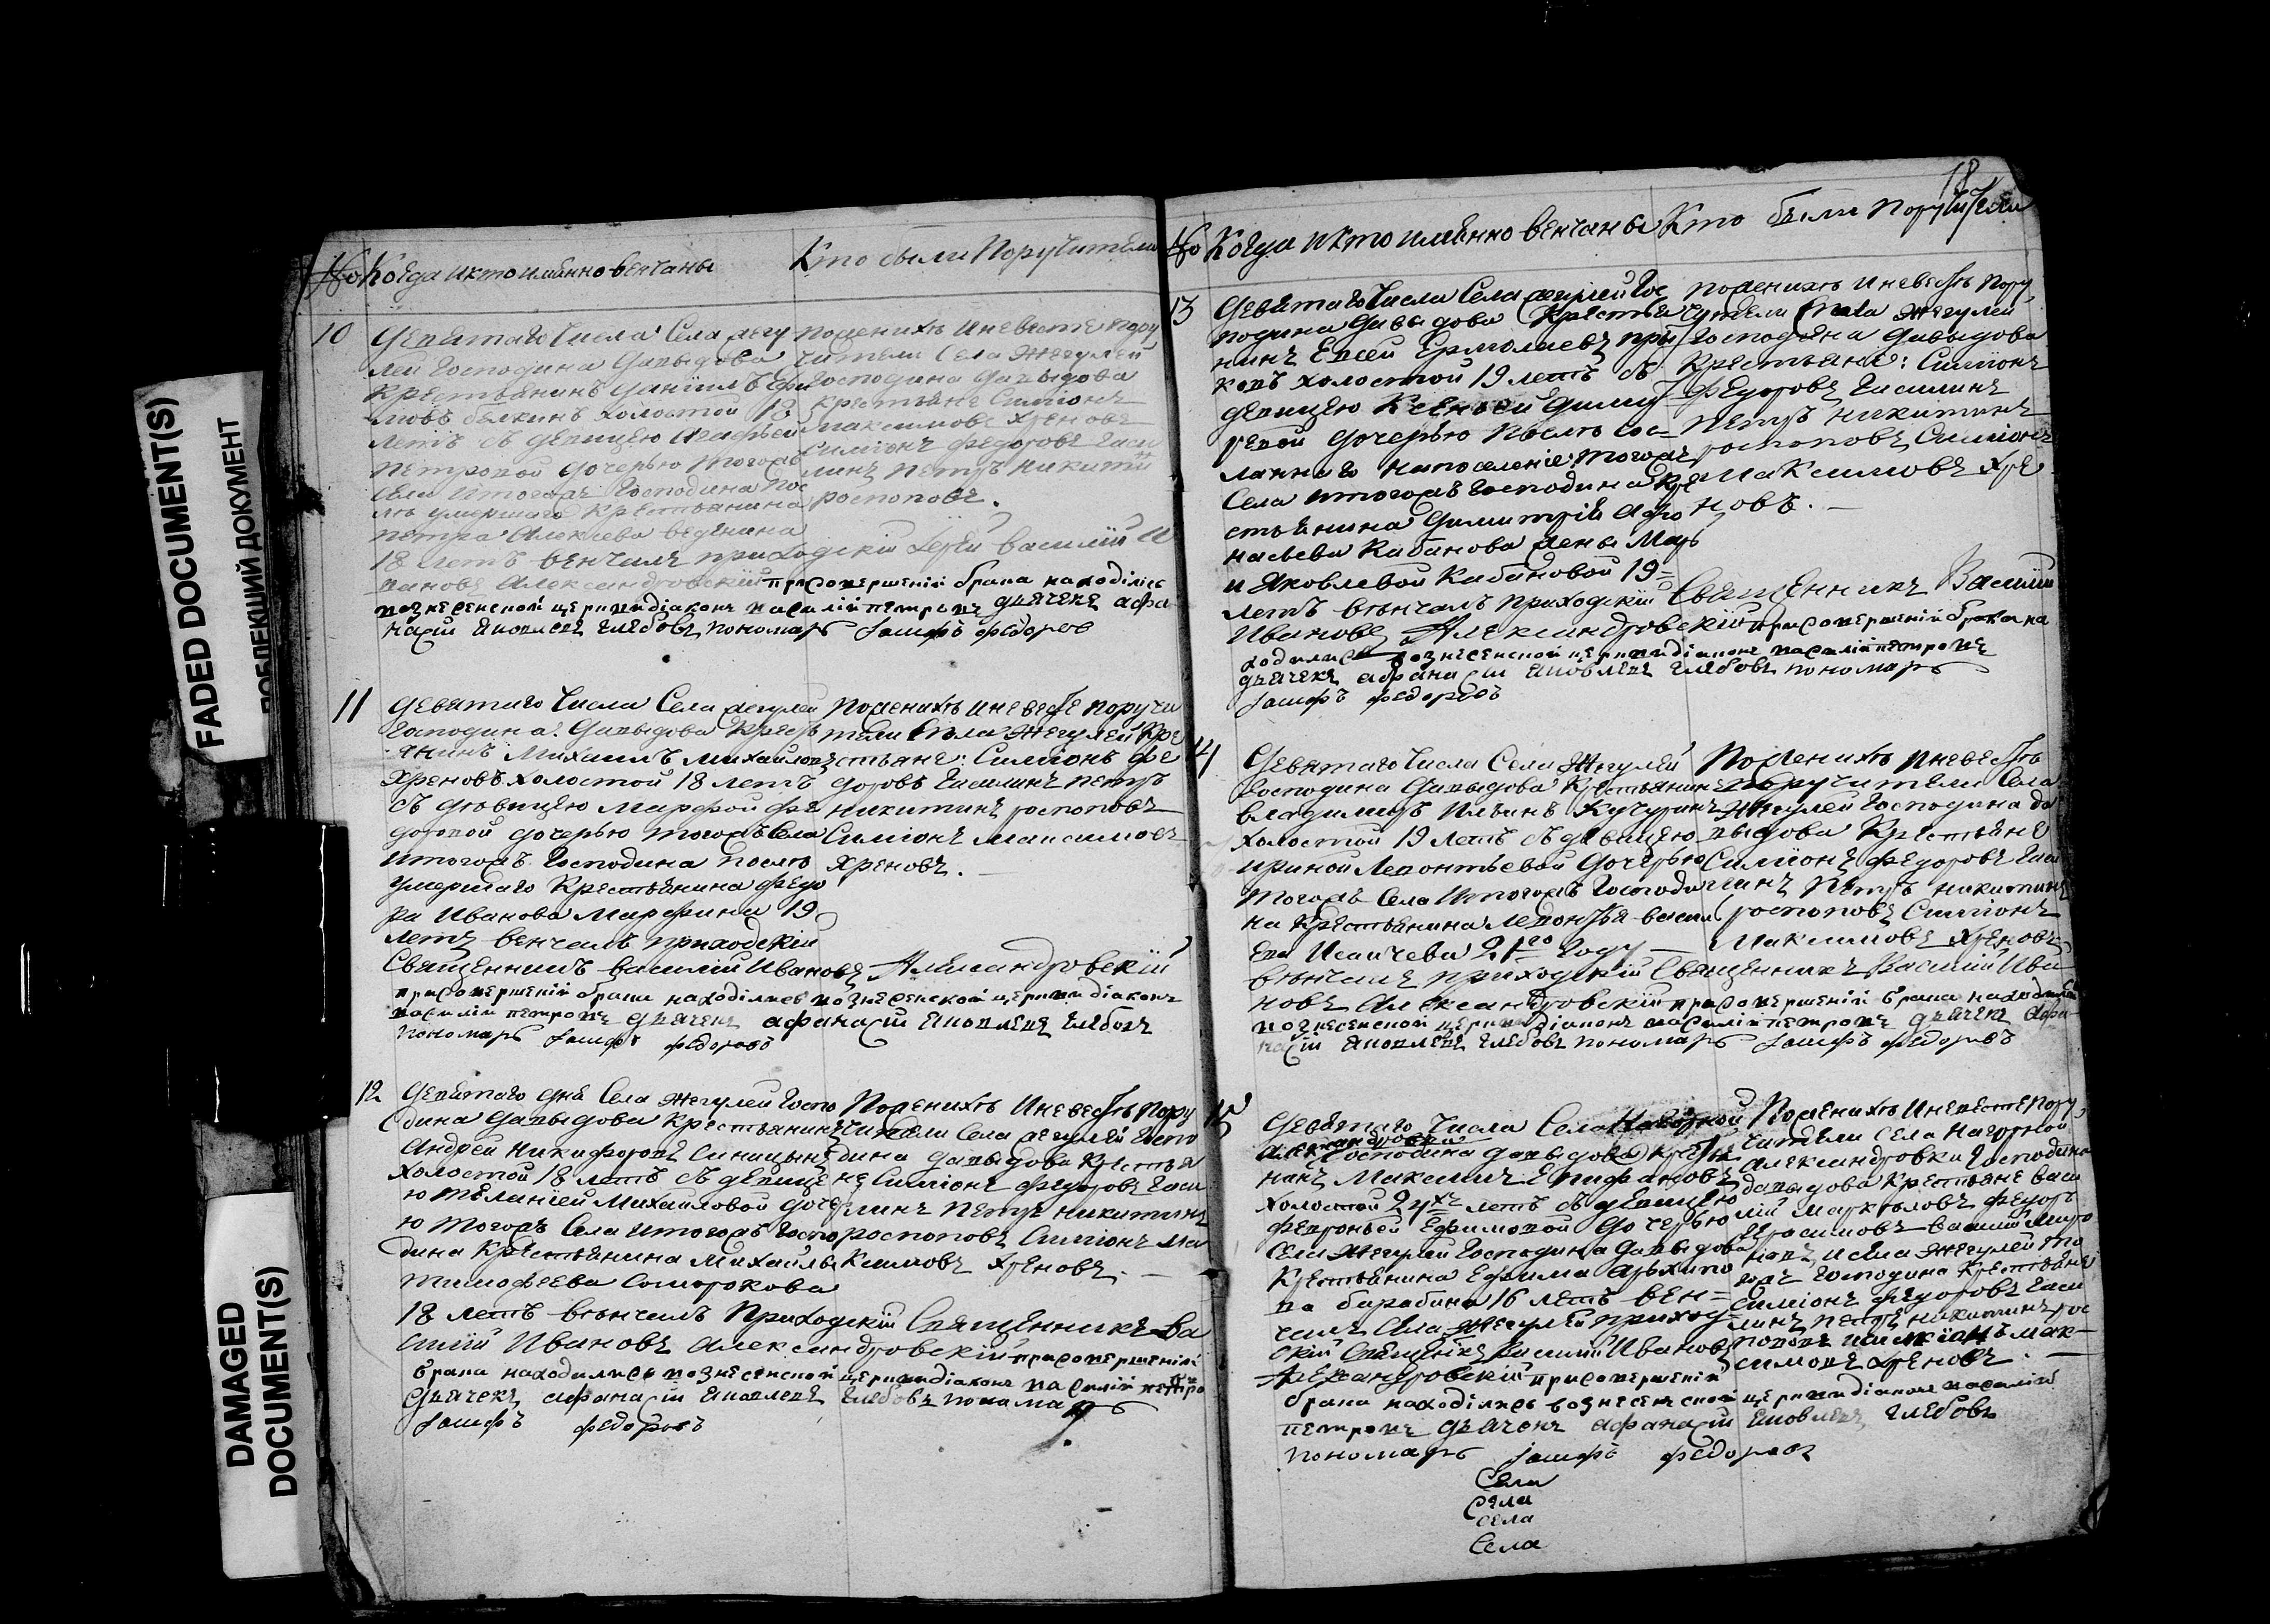 FADED DOCUMENT(S)
ПОБЛЕКШИЙ ДОКУМЕНТ
DAMAGED
DOCUMENT(S)
No Когда и кто имянно венчаны
Кто были Поручители
10
Девятаго Числа Села жегу
лей Господина Давыдова
Крестьянинъ Данiилъ
белкинъ холостой 18
летъ съ девицею Агафьей
Петровой дочерью тогожъ
села и тогожъ Господина пос
лѣ умершаго крестьянина
петра Алексеева веденина
18 летъ венчалъ приходскiй Iерей василiй И
вановъ Александровскiй при совершенiй брака находiлись
вознесенской церкви дiаконъ василiй петровъ дьячекъ афа
насiй Яковлевъ глебовъ пономарь Iосифъ федоровъ
По женихѣ и невесте пору
чители Села Жегулей
Господина Давыдова
крестьяне Симiонъ
максимовъ Хреновъ
Симiонъ Федоровъ Гаси
линъ Петръ Никитинъ
роспоповъ.
11
девятаго Числа Села жегулей
Господина Давыдова Кресть
янинъ Михаилъ Михайловъ
Хреновъ холостой 18 летъ
съ дѣвицею Марфой Фе
доровой дочерью тогожъ Села
и тогожъ Господина послѣ
умершаго Крестьянина федо
ра Иванова Марфина 19
летъ венчалъ приходскiй
Священникъ василiй Ивановъ Александровскiй
при совершенiй брака находiлись вознесенской церкви дiаконъ
василiй петровъ дьячекъ афанасiй Яковлевъ глебовъ
пономарь Iосифъ федоровъ
По женихѣ и невесте поручи
тели Села Жегулей Кре
стьяне: Симiонъ Фе
доровъ Гасилинъ петръ
никитинъ роспоповъ
Симiонъ Максимовъ
Хреновъ.
12
Девятаго дня Села Жегулей Госпо
дина Давыдова Крестьянинъ
Андрей Никифоровъ Синицынъ
холостой 18 летъ съ девице
ю Меланiей Михайловой дочерь
ю тогожъ Села и тогожъ Госпо
дина Крестьянина Михайлы
тимофеева Соморокова
18 летъ вѣнчалъ Приходскiй Священникъ Ва
силiй Ивановъ Александровскiй при совершенiй
брака находились вознесенской церкви дiаконъ василiй петро
дьячекъ афанасiй Яковлевъ глебовъ пономарь
Iосифъ федоровъ
По женихѣ и невестѣ пору
чители Села жегулей Госпо
дина давыдова Крестья
не Симiонъ Федоровъ Гаси
линъ Петръ никитинъ
роспоповъ Симiонъ Ма
ксимовъ Хреновъ.
18
No Когда и кто имянно венчаны
Кто были Поручители
13
Девятаго Числа Села жегулей Гос
подина Давыдова Крестья
нинъ Евсей Ермолаевъ
холостой 19 летъ съ
девицею Ксеньей Дмит
ревой дочерью послѣ сос
ланнаго на поселенiе тогожъ
Села и тогожъ Господина Кре
стьянина Димитрiй Афо
насьева Кабанова жены Марь
и Яковлевой Кабановой 19
летъ вѣнчалъ приходскiй Священникъ Василiй
Ивановъ Александровскiй при совершенiй брака на
ходились вознесенской церкви дiаконъ василiй петровъ
дьячекъ афанасiй Яковлевъ глебовъ пономарь
Iосифъ федоровъ
по женихѣ и невестѣ пору
чители Села Жегулей
Господина Давыдова
Крестьяне: Симiонъ
Федоровъ Гасилинъ
Петръ никитинъ
роспоповъ Симiонъ
Максимовъ Хре
новъ.
14
Девятаго Числа Села Жегулей
Господина Давыдова Крестьянинъ
владимиръ Ильинъ Кучуринъ
холостой 19 летъ съ девицею
ириной Левонтьевой дочерью
тогожъ Села и тогожъ Господи
на Крестьянина Левонтья васил
ева Исаичева 21го году
вѣнчалъ приходскiй Священникъ Василiй Ива
новъ Александровскiй при совершенiй брака находились
вознесенской церкви дiаконъ василiй петровъ дьячекъ афа
насiй Яковлевъ глебовъ пономарь Iосифъ федоровъ
По женихѣ и невестѣ
поручители Села
Жегулей Господина да
выдова Крестьяне
Симiонъ Федоровъ Гаси
линъ Петръ никитинъ
роспоповъ Симiонъ
Максимовъ Хреновъ
15
Девятаго Числа Села Нагорной
александровки
Господина давыдова Кресть
нинъ Максимъ Епифановъ
холостой 24хъ летъ съ девицею
Февроньей Ефимовой дочерью
Села Жегулей Господина Давыдова
Крестьянина Ефима Архипо
ва барабина 16 летъ вен=
чалъ Села Жегулей приход
скiй Священикъ Василiй Ивановъ
Александровскiй при совершенiй
брака находiлись вознесенской церкви дiаконъ василiй
петровъ дьячокъ афанасiй Яковлевъ глебовъ
пономарь Iосифъ федоровъ
По женихѣ и невесте пору
чители Села Нагорной
Александровки Господина
давыдова Крестьяне васи
лiй Маркеловъ Федоръ
Герасимовъ василiй Миро
новъ и села Жегулей то
гожъ Господина Крестьяне
Симiонъ Федоровъ Гаси
линъ петръ никитинъ рос
поповъ и симiонъ мак
симовъ Хреновъ.
Села
Села
села
Села